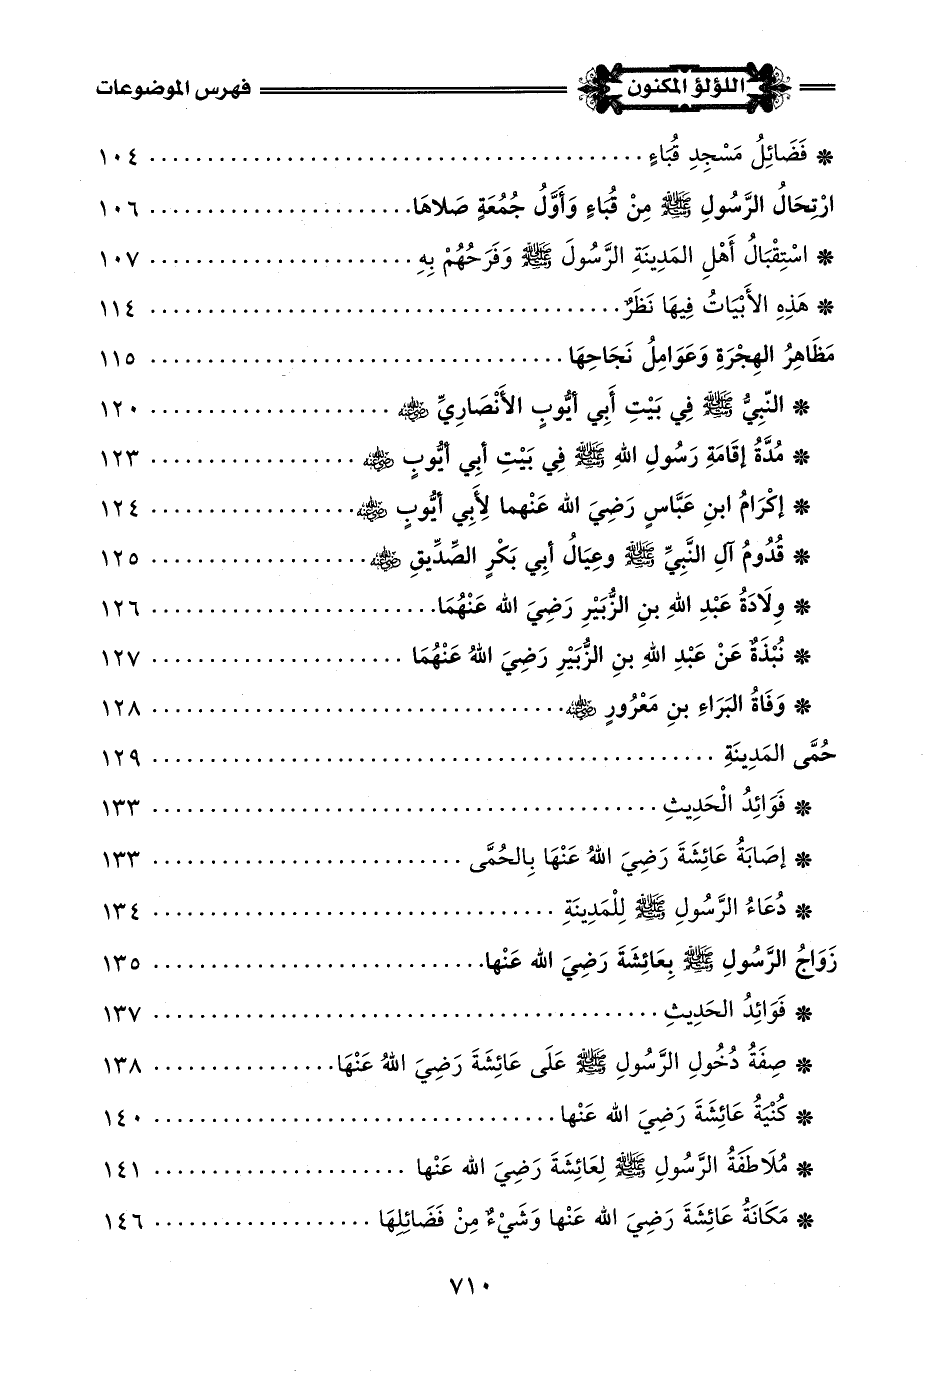 اللؤلؤ المكنون فهرس الموضوعات
❋ فَضَائِلُ مَسْجِدِ قُبَاءٍ ........................................ ١٠٤
ارْتِحَالُ الرَّسُولِ ﷺ مِنْ قُبَاءٍ وَأَوَّلُ جُمُعَةٍ صَلاهَا ........................ ١٠٦
❋ اسْتِقْبَالُ أَهْلِ المَدِينَةِ الرَّسُولَ ﷺ وَفَرَحُهُمْ بِهِ ........................ ١٠٧
❋ هَذِهِ الأَبْيَاتُ فِيهَا نَظَرٌ ........................................ ١١٤
مَظَاهِرُ الهِجْرَةِ وَعَوَامِلُ نَجَاحِهَا .................................... ١١٥
❋ النَّبِيُّ ﷺ فِي بَيْتِ أَبِي أيُّوبٍ الأَنْصَارِيِّ رضي الله عنه .................... ١٢٠
❋ مُدَّةُ إقَامَةِ رَسُولِ اللهِ ﷺ فِي بَيْتِ أبِي أيُّوبٍ رضي الله عنه .................. ١٢٣
❋ إكْرَامُ ابنِ عَبَّاسٍ رَضِيَ الله عَنْهما لِأَبِي أيُّوبٍ رضي الله عنه .................. ١٢٤
❋ قُدُومُ آلِ النَّبِيِّ ﷺ وعِيَالُ أبِي بَكْرٍ الصِّدِّيقِ رضي الله عنه .................. ١٢٥
❋ وِلَادَةُ عَبْدِ اللهِ بنِ الزُّبَيْرِ رَضِيَ الله عَنْهُمَا ........................ ١٢٦
❋ نُبْذَةٌ عَنْ عَبدِ اللهِ بنِ الزُّبَيْرِ رَضِيَ اللهُ عَنْهُمَا ...................... ١٢٧
❋ وَفَاةُ البَرَاءِ بنِ مَعْرُورٍ رضي الله عنه .................................... ١٢٨
حُمَّى المَدِينَةِ ................................................ ١٢٩
❋ فَوَائِدُ الْحَدِيثِ ............................................ ١٣٣
❋ إصَابَةُ عَائِشَةَ رَضِيَ اللهُ عَنْهَا بِالحُمَّى .......................... ١٣٣
❋ دُعَاءُ الرَّسُولِ ﷺ لِلْمَدِينَةِ .................................. ١٣٤
زَوَاجُ الرَّسُولِ ﷺ بِعَائِشَةَ رَضِيَ الله عَنْها ............................ ١٣٥
❋ فَوَائِدُ الحَدِيثِ ............................................ ١٣٧
❋ صِفَةُ دُخُولِ الرَّسُولِ ﷺ عَلَى عَائِشَةَ رَضِيَ اللهُ عَنْهَا ................ ١٣٨
❋ كُنْيَةُ عَائِشَةَ رَضِيَ الله عَنْها .................................. ١٤٠
❋ مُلَاطَفَةُ الرَّسُولِ ﷺ لِعَائِشَةَ رَضِيَ الله عَنْها ...................... ١٤١
❋ مَكَانَةُ عَائِشَةَ رَضِيَ الله عَنْها وَشَيْءٌ مِنْ فَضَائِلِهَا .................. ١٤٦
٧١٠